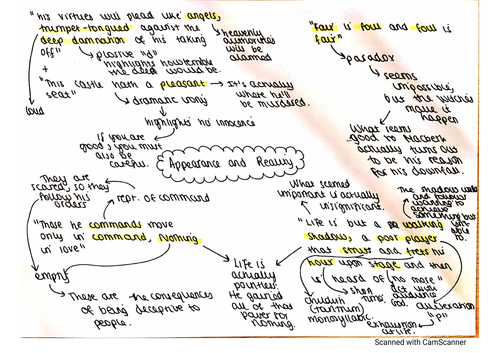 "his virtues will plead like angels,
trumpet-tongued against the
deep damnation of his taking
off"
heavenly
authorities
will be
alarmed
plosive "d"
highlights how terrible
the deed would be.
+
loud
"This castle hath a pleasant
seat"
It's actually
where he'll
be murdered.
dramatic irony
highlights his innocence
If you are
good, you must
also be
careful.
"Fair is foul and foul is
fair"
paradox
seems
impossible,
but the witches
make it
happen
What seems
good to Macbeth
actually turns out
to be his reason
for his downfall.
Appearance and Reality
They are
scared, so they
follow his
orders
rept. of command
"Those he commands move
only in command, nothing
in love"
empty
These are the consequences
of being deceptive to
people.
Life is
actually
pointless.
He gained
all of that
power for
nothing.
What seemed
important is actually
insignificant.
The shadows walks
and follows
wanting to
achieve
something but
able to.
"Life is but a walking
shadow, a poor player
that struts and frets his
hour upon stage and then
is heard of no more"
childish
(tantrum)
monosyllabic.
short
time.
act with
audience
God.
exhaustion
at life.
alliteration
"p"
Scanned with CamScanner